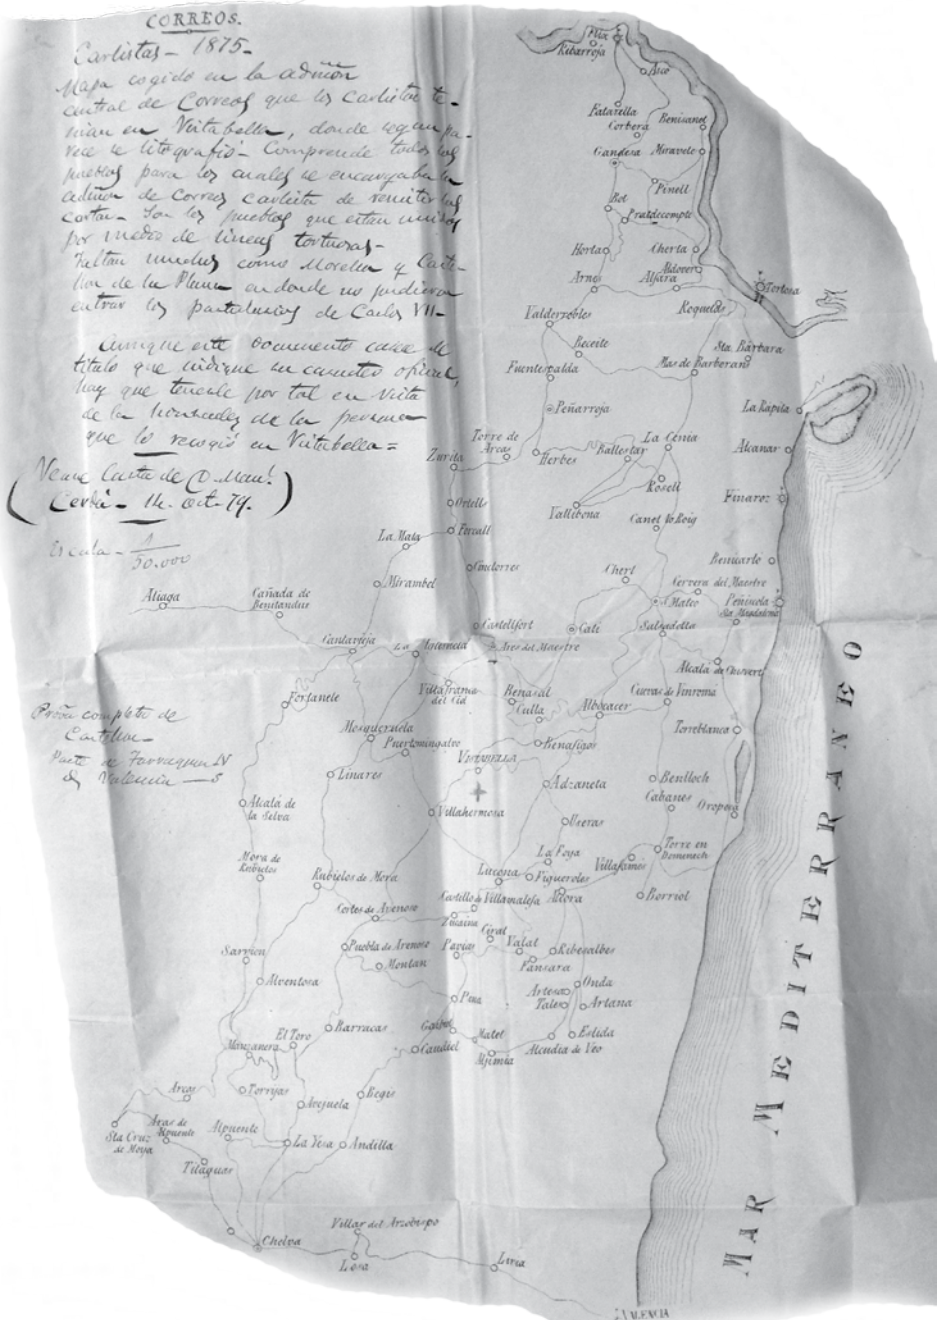 CORREOS.
Carlistas - 1875-
Mapa cogido en la admon
central de Correos que los carlistas te-
nian en Vistabella, donde segun pa-
rece se litografió - Comprende todos los
pueblos para los cuales se encargaba la
admon de correos carlista de remitir las
cartas - Son los pueblos que estan unidos
por medio de lineas tortuosas -
Faltan muchos como Morella y Caste-
llon de la Plana en donde no pudieron
entrar los partidarios de Carlos VII -
Aunque este documento carece de
titulo que indique su caracter oficial,
hay que tenerle por tal en vista
de la honradez de la persona
que lo recogió en Vistabella =
(Vease Carta de D. Man!
Cerdá - 14. oct. 79.)
Escala - 1/50.000
Provª completa de
Castellon
Parte de Tarragona N
id Valencia - S
Flix
Ribarroja
Asco
Fatarella
Corbera
Benisanet
Gandesa
Moravete
Pinell
Bot
Pratdecompte
Horta
Cherta
Aldover
Arnes
Alfara
Tortosa
Roquetas
Valderrobles
Beceite
Sta. Bárbara
Fuentespalda
Mas de Barberans
Peñarroja
La Rapita
Torre de Arcas
Herbes
Ballestar
La Cenia
Alcanar
Zurita
Rosell
Vinaroz
Ortells
Vallibona
Canet lo Roig
La Mata
Forcall
Benicarló
Mirambel
Cinctorres
Chert
Cervera del Maestre
Aliaga
Cañada de Benitandus
S. Mateo
Peñiscola
Sta Magdalena
Castellfort
Cati
Salsadella
Cantavieja
La Iglesuela
Ares del Maestre
Alcalá de Chivert
Fortanete
Villafranca del Cid
Benasal
Culla
Albocacer
Cuevas de Vinroma
Mosqueruela
Puertomingalvo
Torreblanca
Benafigos
VISTABELLA
Linares
Adzaneta
Benlloch
Cabanes
Oropesa
Alcalá de la Selva
Villahermosa
Useras
La Foya
Torre en Domenech
Mora de Rubielos
Villafamés
Rubielos de Mora
Lucena
Figueroles
Castillo de Villamalefa
Alcora
Borriol
Cortes de Arenoso
Zucaina
Cirat
Puebla de Arenoso
Pavias
Vallat
Ribesalbes
Sarrion
Montan
Fansara
Alventosa
Onda
Artesa
Tales
Artana
Pina
Barracas
El Toro
Gaibiel
Matet
Eslida
Manzanera
Caudiel
Aljimia
Alcudia de Veo
Arcos
Torrijas
Begis
Avejuela
Sta Cruz de Moya
Aras de Alpuente
Alpuente
La Yesa
Andilla
Titaguas
Villar del Arzobispo
Chelva
Losa
Liria
VALENCIA
MAR MEDITERRANEO